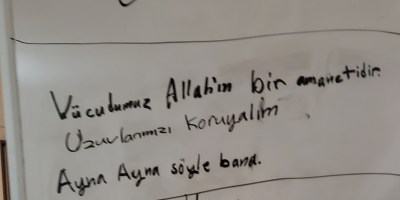 Vücudumuz Allah'ın bir amanetidir.
Uzuvlarımızı Koruyalım
Ayna Ayna söyle bana.